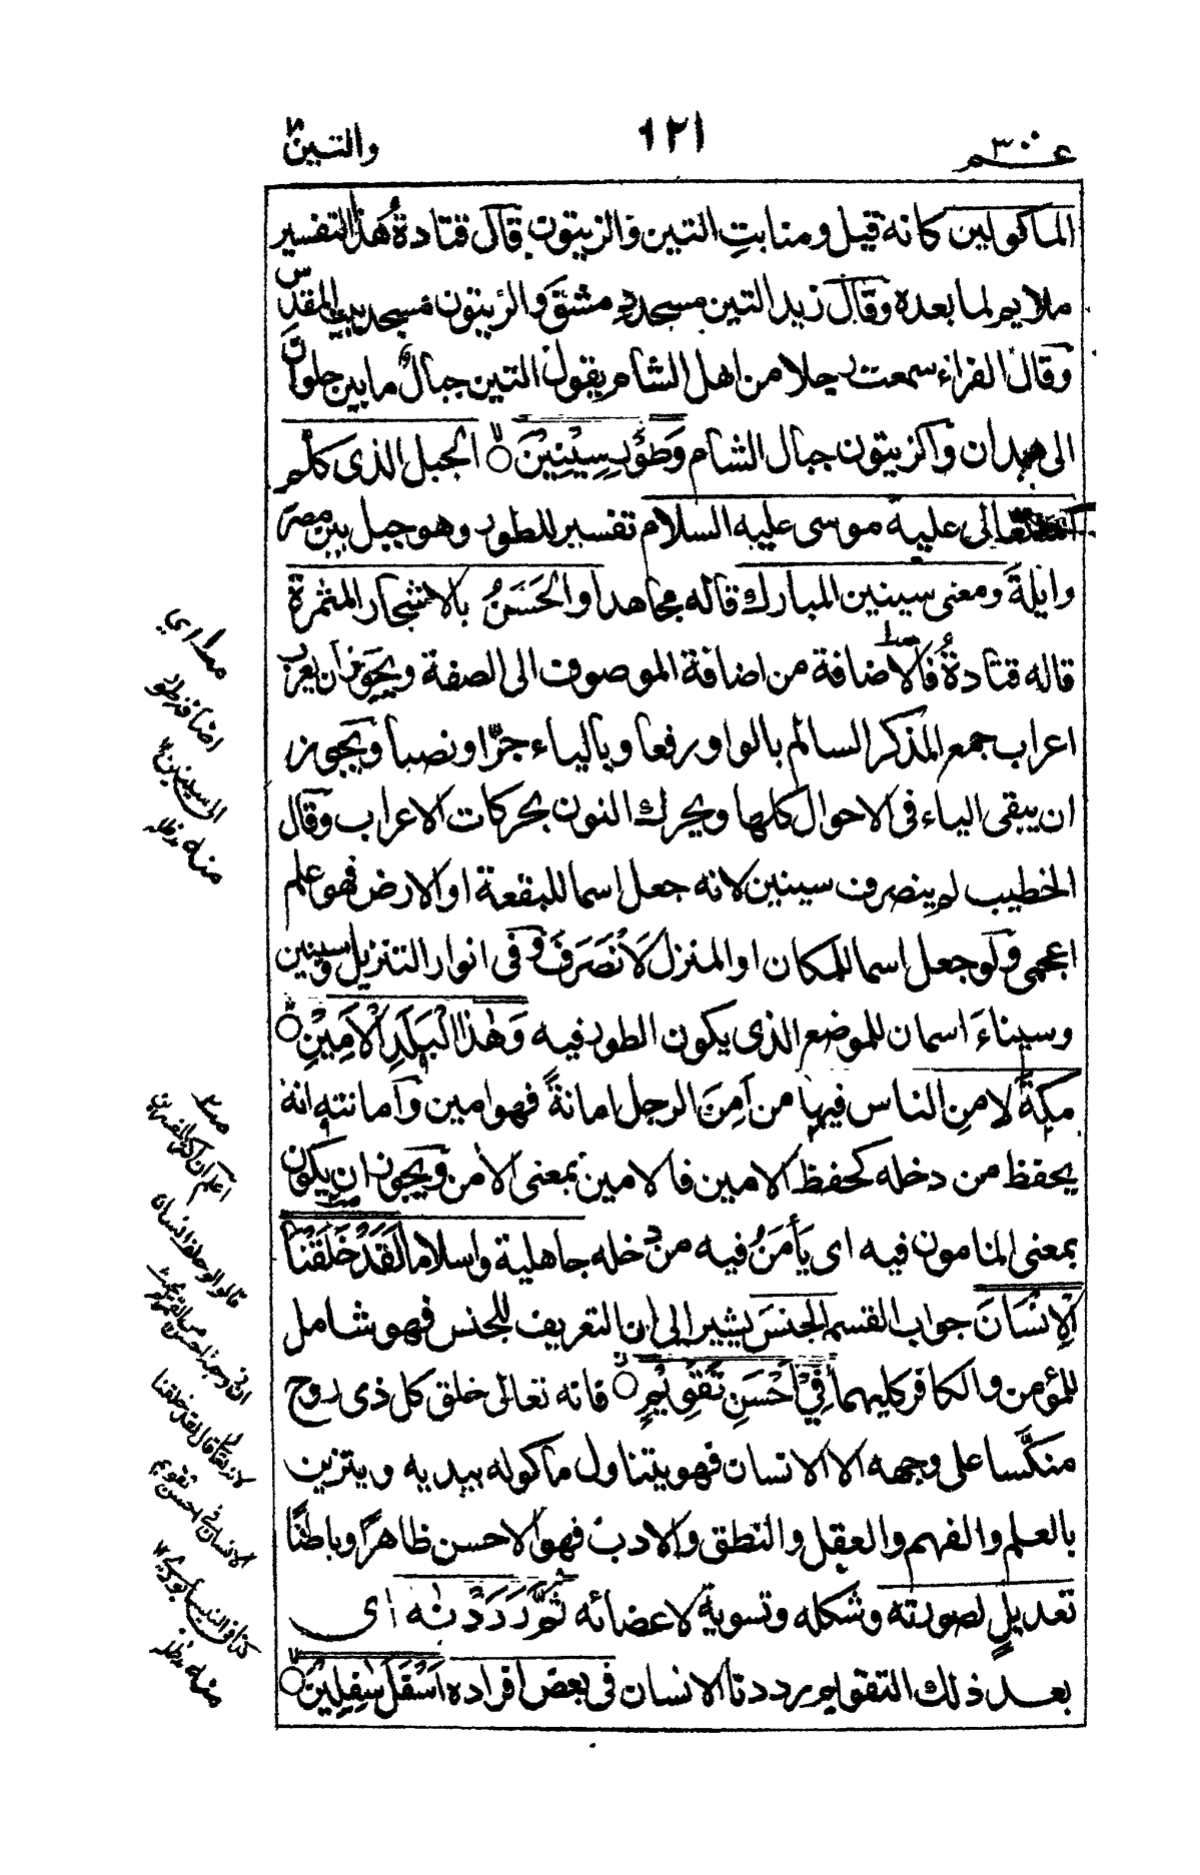 عـم ٣٠
١٢١
والتين
الماكولين كانه قيل ومنابتِ التين والزيتون قال قتادةُ هذا التفسير
ملايم لما بعده وقال زيد التين مسجد دمشق والزيتون مسجد بيت المقدس
وقال الفراء سمعت رجلا من اهل الشام يقول التين جبالٌ ما بين حلوان
الى همدان والزيتون جبال الشام وَطُوْرِ سِيْنِيْنَ الجبل الذى كلم
الله تعالى عليه موسى عليه السلام تفسير للطور وهو جبل بين مصر
وايلةَ ومعنى سينين المبارك قاله مجاهد او الحَسَنُ بالاشجار المثمرة
قاله قتادةُ فالاضافة من اضافة الموصوف الى الصفة ويجوز ان يعرب
اعراب جمع المذكر السالم بالواو رفعا وبالياء جرًّا ونصبا ويجوز
ان يبقى الياء فى الاحوال كلها ويحرك النون بحركات الاعراب وقال
الخطيب لم ينصرف سينين لانه جعل اسما للبقعة او الارض فهو علم
اعجمى ولو جعل اسما للمكان او المنزل لَانْصَرَفَ وفى انوار التنزيل وسينين
وسيناءَ اسمان للموضع الذى يكون الطور فيه وَهٰذَا الْبَلَدِ الْاَمِيْنِ
مكةَ لامنِ الناس فيها من اَمِنَ الرجل امانةً فهو امين وامانته انه
يحفظ من دخله كحفظ الامين فالامين بمعنى الأمن ويجوز ان يكون
بمعنى المامون فيه اى يَأْمَنُ فيه من دخله جاهلية واسلاما لَقَدْ خَلَقْنَا
الْاِنْسَانَ جواب القسم الجنسَ يشير الى ان التعريف للجنس فهو شامل
للمؤمن والكافر كليهما فِيْ اَحْسَنِ تَقْوِيْمٍ فانه تعالى خلق كل ذى روح
منكَّسا على وجهه الا الانسان فهو يتناول ماكوله بيديه ويتزين
بالعلم والفهم والعقل والنطق والادب فهو الاحسن ظاهرًا وباطنًا
تعديلٍ لصورته وشكله وتسوية لاعضائه ثُمَّ رَدَدْنٰهُ اى
بعـد ذلك التقوايم رددنا الانسان فى بعض افراده اَسْفَلَ سٰفِلِيْنَ
اضافة طور
الى سينين
منه
اعلم ان اكثر المفسرين
قالوا لو حلف انسان
لقد خلقنا
الانسان فى احسن تقويم
كذا فى النيسابورى
منه